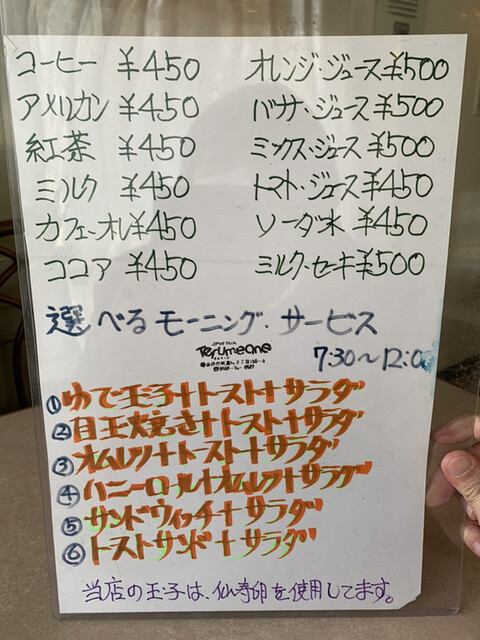 コーヒー ¥450 オレンジ・ジュース ¥500
アメリカン ¥450 バナナ・ジュース ¥500
紅茶 ¥450 ミックス・ジュース ¥500
ミルク ¥450 トマト・ジュース ¥450
カフェ・オレ ¥450 ソーダ水 ¥450
ココア ¥450 ミルク・セーキ ¥500
選べるモーニング・サービス
Terumeane
7:30〜12:00
①ゆで玉子+トースト+サラダ
②目玉焼き+トースト+サラダ
③オムレツ+トースト+サラダ
④ハニーロール+オムレツ+サラダ
⑤サンドウィッチ+サラダ
⑥トーストサンド+サラダ
当店の玉子は、仙寿卵を使用してます。